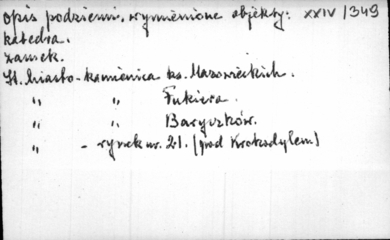 Opis podziemi, wymienione objekty: XXIV/349
katedra.
zamek.
St. Miasto - kamienica ks. Mazowieckich.
" " Fukiera.
" " Baryczków.
" - rynek nr. 21. (pod Krokodylem)